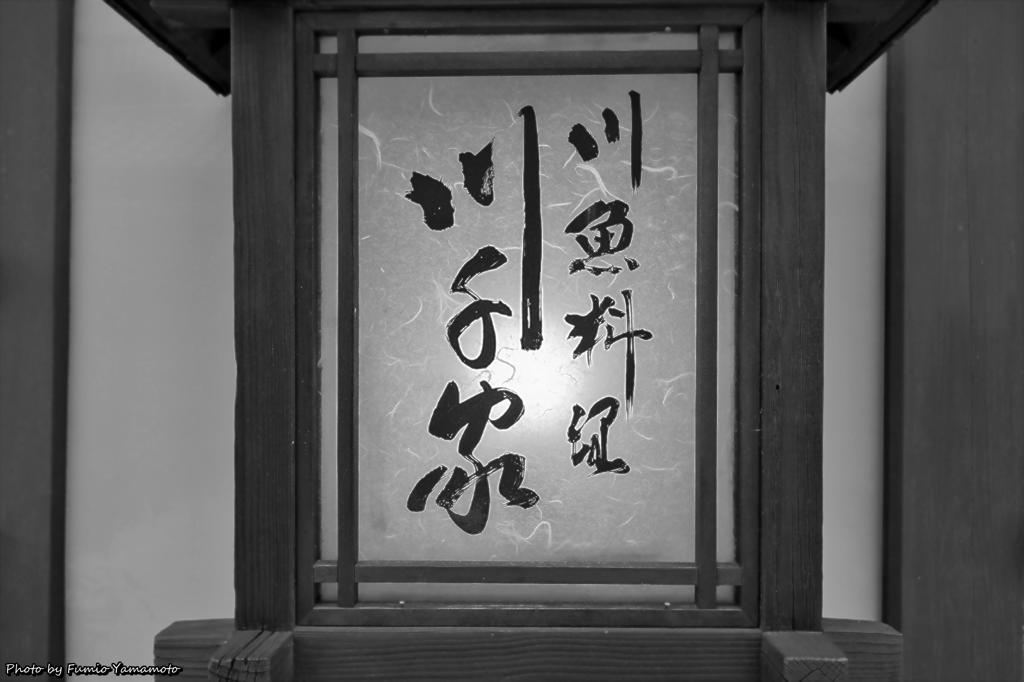 川魚料理
川千家
Photo by Fumio Yamamoto